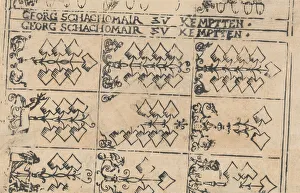 GEORG SCHACHOMAIR ZV KEMPTTEN.
GEORG SCHACHOMAIR ZV KEMPTTEN.